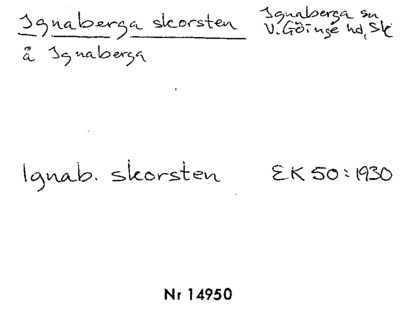 Ignaberga skorsten
Ignaberga sn
V. Göinge hd, Sk
å Ignaberga
Ignab. skorsten EK 50:1930
Nr 14950